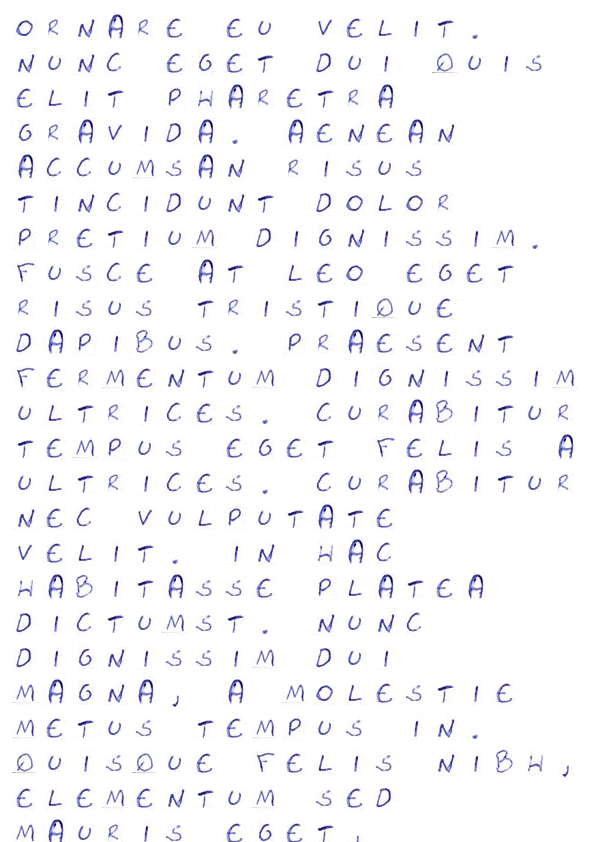 ORNARE EU VELIT.
NUNC EGET DUI QUIS
ELIT PHARETRA
GRAVIDA. AENEAN
ACCUMSAN RISUS
TINCIDUNT DOLOR
PRETIUM DIGNISSIM.
FUSCE AT LEO EGET
RISUS TRISTIQUE
DAPIBUS. PRAESENT
FERMENTUM DIGNISSIM
ULTRICES. CURABITUR
TEMPUS EGET FELIS A
ULTRICES. CURABITUR
NEC VULPUTATE
VELIT. IN HAC
HABITASSE PLATEA
DICTUMST. NUNC
DIGNISSIM DUI
MAGNA, A MOLESTIE
METUS TEMPUS IN.
QUISQUE FELIS NIBH,
ELEMENTUM SED
MAURIS EGET,